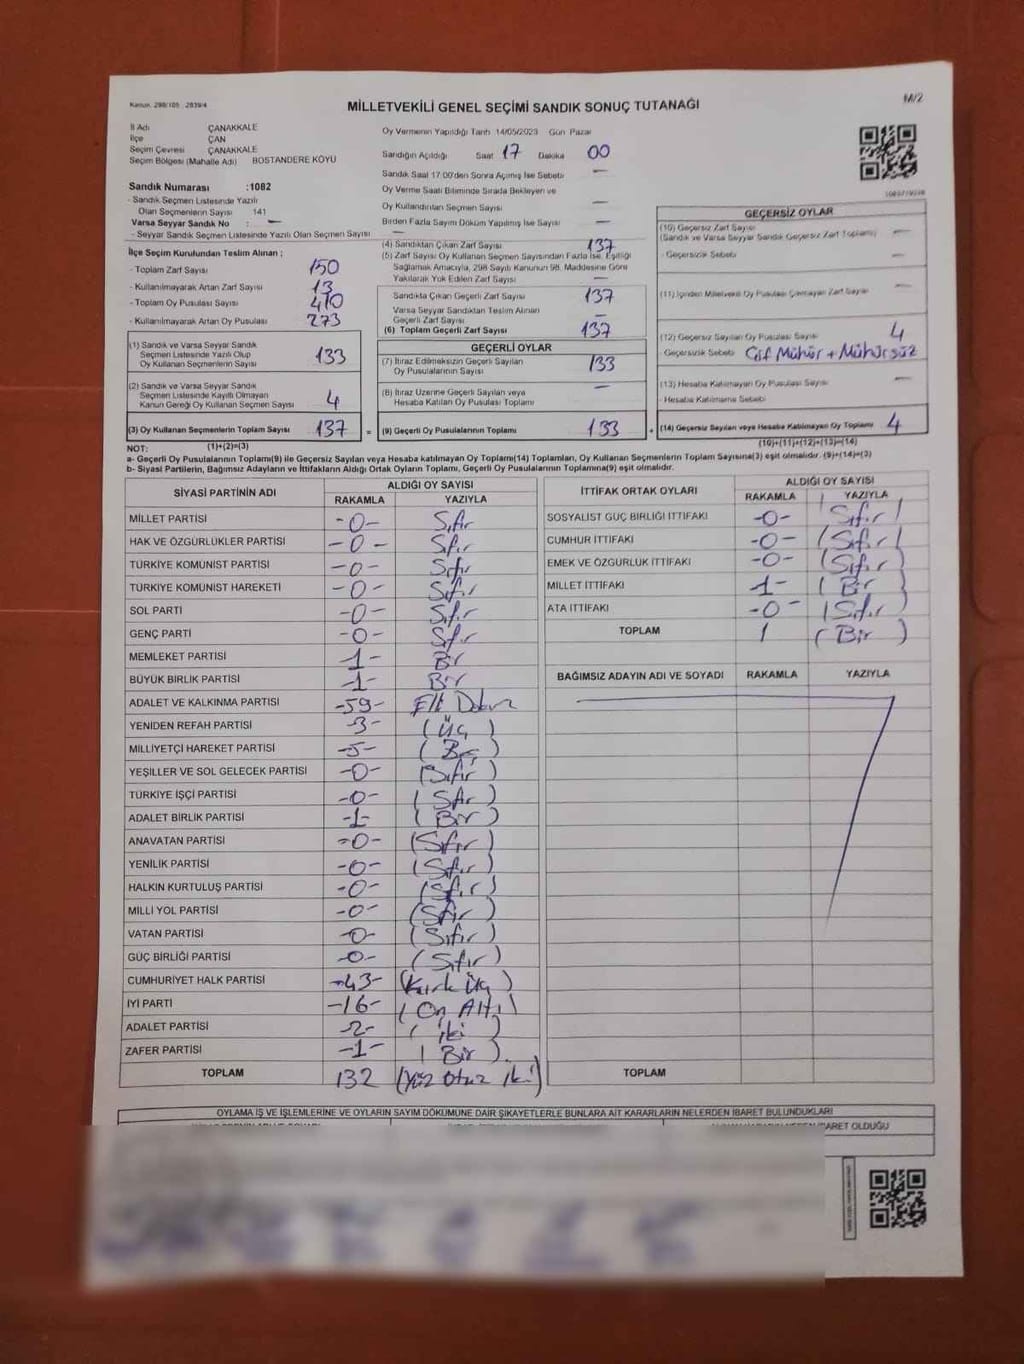 Kanun. 298/105 . 2839/4
MİLLETVEKİLİ GENEL SEÇİMİ SANDIK SONUÇ TUTANAĞI
M/2
İl Adı ÇANAKKALE
İlçe ÇAN
Seçim Çevresi ÇANAKKALE
Seçim Bölgesi (Mahalle Adı) BOSTANDERE KÖYÜ
Sandık Numarası :1082
- Sandık Seçmen Listesinde Yazılı
Olan Seçmenlerin Sayısı 141
Varsa Seyyar Sandık No : —
- Seyyar Sandık Seçmen Listesinde Yazılı Olan Seçmen Sayısı —
İlçe Seçim Kurulundan Teslim Alınan ;
- Toplam Zarf Sayısı 150
- Kullanılmayarak Artan Zarf Sayısı 13
- Toplam Oy Pusulası Sayısı 410
- Kullanılmayarak Artan Oy Pusulası 273
(1) Sandık ve Varsa Seyyar Sandık
Seçmen Listesinde Yazılı Olup
Oy Kullanan Seçmenlerin Sayısı 133
(2) Sandık ve Varsa Seyyar Sandık
Seçmen Listesinde Kayıtlı Olmayan
Kanun Gereği Oy Kullanan Seçmen Sayısı 4
(3) Oy Kullanan Seçmenlerin Toplam Sayısı 137
Oy Vermenin Yapıldığı Tarih 14/05/2023 Gün Pazar
Sandığın Açıldığı Saat 17 Dakika 00
Sandık Saat 17:00'den Sonra Açılmış İse Sebebi —
Oy Verme Saati Bitiminde Sırada Bekleyen ve
Oy Kullandırılan Seçmen Sayısı —
Birden Fazla Sayım Döküm Yapılmış İse Sayısı —
(4) Sandıktan Çıkan Zarf Sayısı 137
(5) Zarf Sayısı Oy Kullanan Seçmen Sayısından Fazla İse, Eşitliği
Sağlamak Amacıyla, 298 Sayılı Kanunun 98. Maddesine Göre
Yakılarak Yok Edilen Zarf Sayısı —
Sandıkta Çıkan Geçerli Zarf Sayısı 137
Varsa Seyyar Sandıktan Teslim Alınan
Geçerli Zarf Sayısı —
(6) Toplam Geçerli Zarf Sayısı 137
GEÇERLİ OYLAR
(7) İtiraz Edilmeksizin Geçerli Sayılan
Oy Pusulalarının Sayısı 133
(8) İtiraz Üzerine Geçerli Sayılan veya
Hesaba Katılan Oy Pusulası Toplamı —
= (9) Geçerli Oy Pusulalarının Toplamı 133
GEÇERSİZ OYLAR
(10) Geçersiz Zarf Sayısı
(Sandık ve Varsa Seyyar Sandık Geçersiz Zarf Toplamı) —
- Geçersizlik Sebebi —
(11) İçinden Milletvekili Oy Pusulası Çıkmayan Zarf Sayısı —
(12) Geçersiz Sayılan Oy Pusulası Sayısı 4
Geçersizlik Sebebi Çif Mühür + Mühürsüz
(13) Hesaba Katılmayan Oy Pusulası Sayısı —
- Hesaba Katılmama Sebebi
+ (14) Geçersiz Sayılan veya Hesaba Katılmayan Oy Toplamı 4
NOT: (1)+(2)=(3) (10)+(11)+(12)+(13)=(14)
a- Geçerli Oy Pusulalarının Toplamı(9) ile Geçersiz Sayılan veya Hesaba katılmayan Oy Toplamı(14) Toplamları, Oy Kullanan Seçmenlerin Toplam Sayısına(3) eşit olmalıdır. (9)+(14)=(3)
b- Siyasi Partilerin, Bağımsız Adayların ve İttifakların Aldığı Ortak Oyların Toplamı, Geçerli Oy Pusulalarının Toplamına(9) eşit olmalıdır.
SİYASİ PARTİNİN ADI ALDIĞI OY SAYISI
RAKAMLA YAZIYLA
MİLLET PARTİSİ -0- Sıfır
HAK VE ÖZGÜRLÜKLER PARTİSİ -0- Sıfır
TÜRKİYE KOMÜNİST PARTİSİ -0- Sıfır
TÜRKİYE KOMÜNİST HAREKETİ -0- Sıfır
SOL PARTİ -0- Sıfır
GENÇ PARTİ -0- Sıfır
MEMLEKET PARTİSİ -1- Bir
BÜYÜK BİRLİK PARTİSİ -1- Bir
ADALET VE KALKINMA PARTİSİ -59- Elli Dokuz
YENİDEN REFAH PARTİSİ -3- (Üç)
MİLLİYETÇİ HAREKET PARTİSİ -5- (Beş)
YEŞİLLER VE SOL GELECEK PARTİSİ -0- (Sıfır)
TÜRKİYE İŞÇİ PARTİSİ -0- (Sıfır)
ADALET BİRLİK PARTİSİ -1- (Bir)
ANAVATAN PARTİSİ -0- (Sıfır)
YENİLİK PARTİSİ -0- (Sıfır)
HALKIN KURTULUŞ PARTİSİ -0- (Sıfır)
MİLLİ YOL PARTİSİ -0- (Sıfır)
VATAN PARTİSİ -0- (Sıfır)
GÜÇ BİRLİĞİ PARTİSİ -0- (Sıfır)
CUMHURİYET HALK PARTİSİ -43- (Kırk Üç)
İYİ PARTİ -16- (On Altı)
ADALET PARTİSİ -2- (iki)
ZAFER PARTİSİ -1- (Bir).
TOPLAM 132 (Yüz Otuz iki)
İTTİFAK ORTAK OYLARI ALDIĞI OY SAYISI
RAKAMLA YAZIYLA
SOSYALİST GÜÇ BİRLİĞİ İTTİFAKI -0- (Sıfır)
CUMHUR İTTİFAKI -0- (Sıfır)
EMEK VE ÖZGÜRLÜK İTTİFAKI -0- (Sıfır)
MİLLET İTTİFAKI -1- (Bir)
ATA İTTİFAKI -0- (Sıfır)
TOPLAM 1 (Bir)
BAĞIMSIZ ADAYIN ADI VE SOYADI RAKAMLA YAZIYLA
TOPLAM
OYLAMA İŞ VE İŞLEMLERİNE VE OYLARIN SAYIM DÖKÜMÜNE DAİR ŞİKAYETLERLE BUNLARA AİT KARARLARIN NELERDEN İBARET BULUNDUKLARI
İBARET OLDUĞU